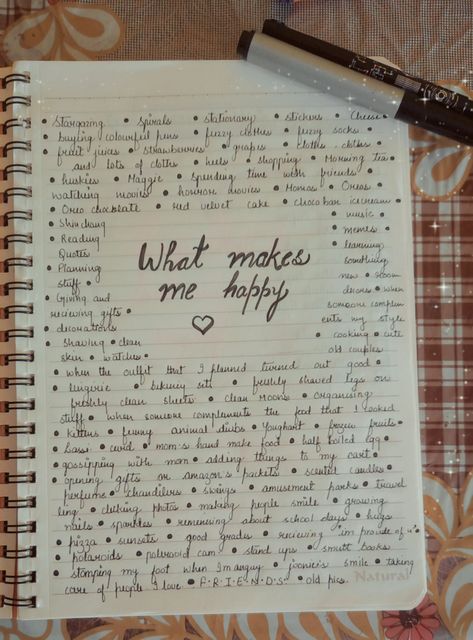 • Stargazing • Spirals • stationary • stickers • Cheese
• buying colourful pens • fuzzy clothes • fuzzy socks •
fruit juices • strawberries • grapes • cloths clothes •
and lots of cloths • heels • shopping • Morning tea •
• huskies • Maggie • spending time with friends •
watching movies • horror movies • Momos • Oreos •
• Oreo chocolate • red velvet cake • choco bar icecream •
• Shinchang
• Reading
Quotes
• Planning
stuff •
• Giving and
recieving gifts •
• decorations
• Shaving • clean
skin • watches •
What makes
me happy
music •
• memes •
• learning
something
new • room
decors • when
someone complem
ents my style
• cooking • cute
old couples
• when the outfit that I planned turned out good •
• lingerie • bakery sets • freshly shaved legs on
freshly clean sheets • clean rooms • organising
stuff • when someone complements the food that I cooked
• kittens • funny animal dubs • Youghart • frozen fruits •
• Lassi • curd • mom's hand make food • half boiled egg •
• gossipping with mom • adding things to my cart •
• opening gifts or Amazon's packets • scented candles •
perfume • chandeliers • swings • amusement parks • travel
ling • clicking photos • making people smile • growing
nails • sparkles • reminising about school days • hugs
• pizza • sunsets • good grades • recieving "im proude of u" •
• polaroids • polaroid cam • stand ups • smutt books •
• stomping my foot when I'm angry • joonie's smile • taking
care of people I love • F.R.I.E.N.D.S • old pics.
Natural